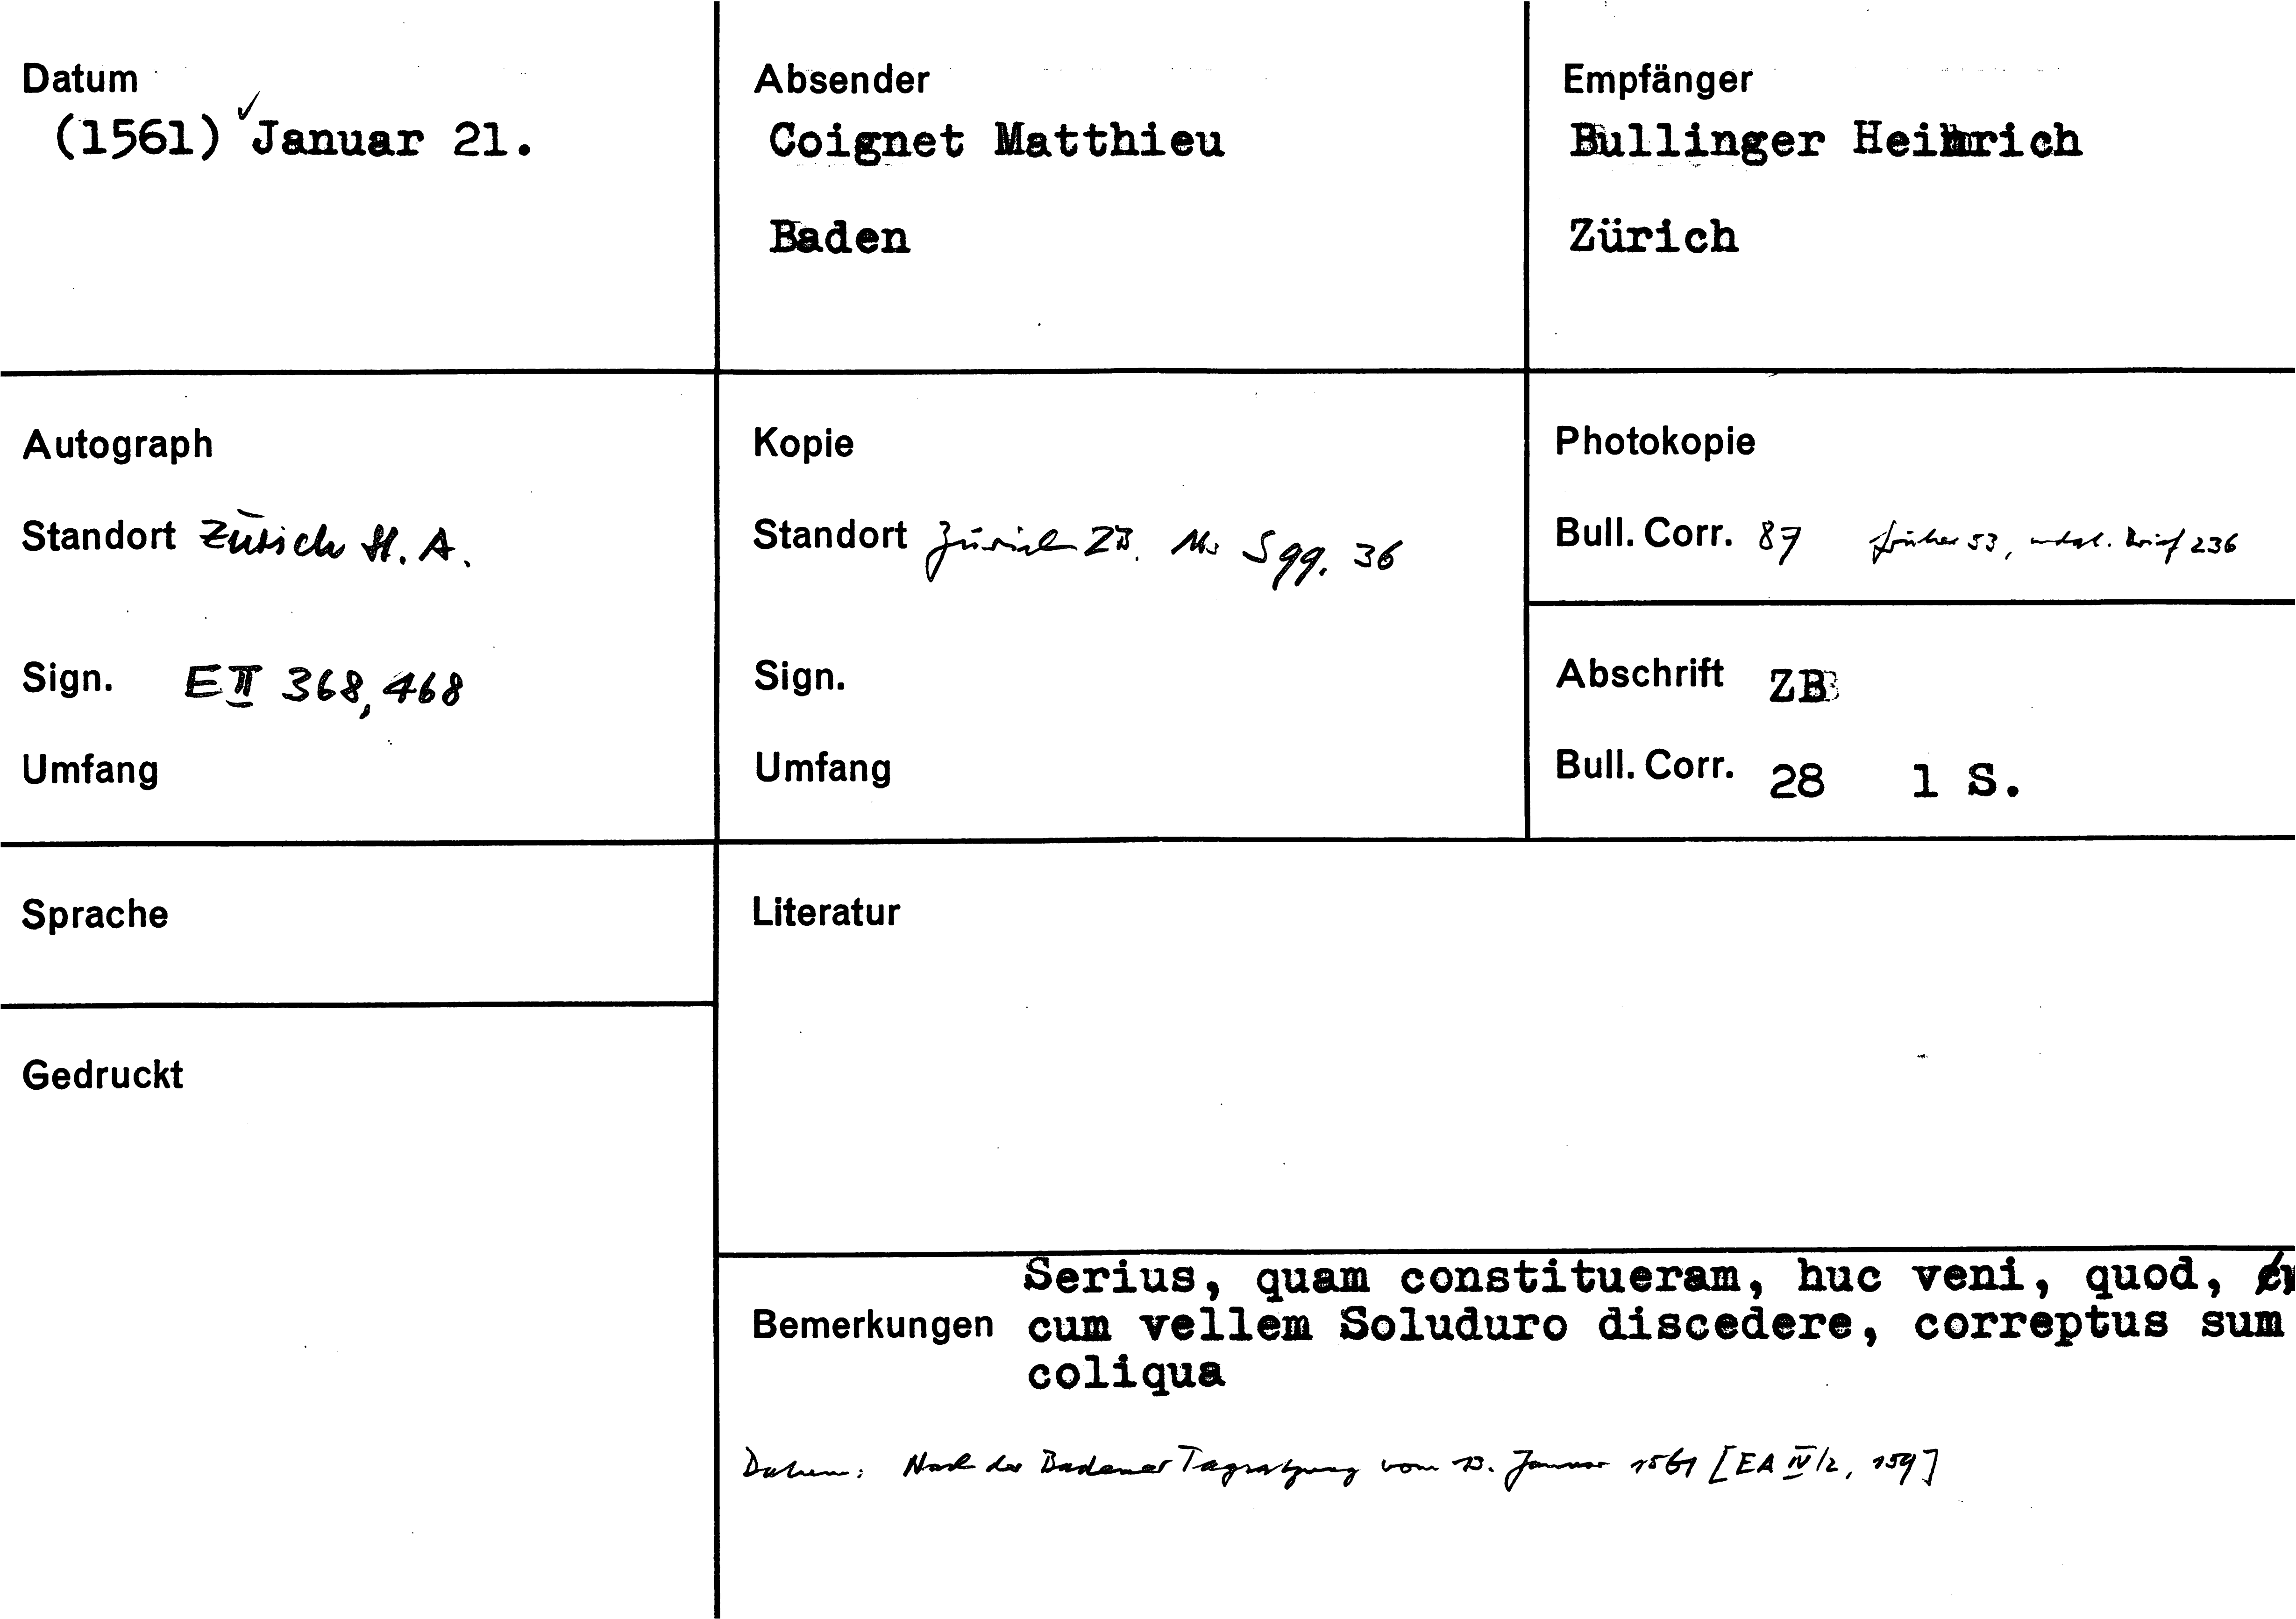 Datum
(1561) ✓Januar 21.
Absender
Coignet Matthieu
Baden
Empfänger
Bullinger Heinrich
Zürich
Autograph
Standort Zürich St. A.
Sign. E II 368, 468
Umfang
Kopie
Standort Zürich ZB. Ms S 99. 36
Sign.
Umfang
Photokopie
Bull. Corr. 87 früher 53, undat. Brief 236
Abschrift ZB
Bull. Corr. 28 1 S.
Sprache
Gedruckt
Literatur
Bemerkungen
Serius, quam constitueram, huc veni, quod,
cum vellem Soluduro discedere, correptus sum
coliqua
Datum: Nach der Badener Tagsatzung vom 13. Januar 1561 [EA IV/2, 159]